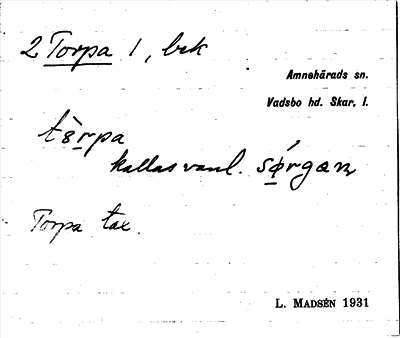 2 Torpa 1, bsk
Amnehärads sn.
Vadsbo hd. Skar. l.
tòrpa
kallas vanl. sǿrgan
Torpa tax.
L. MADSÉN 1931